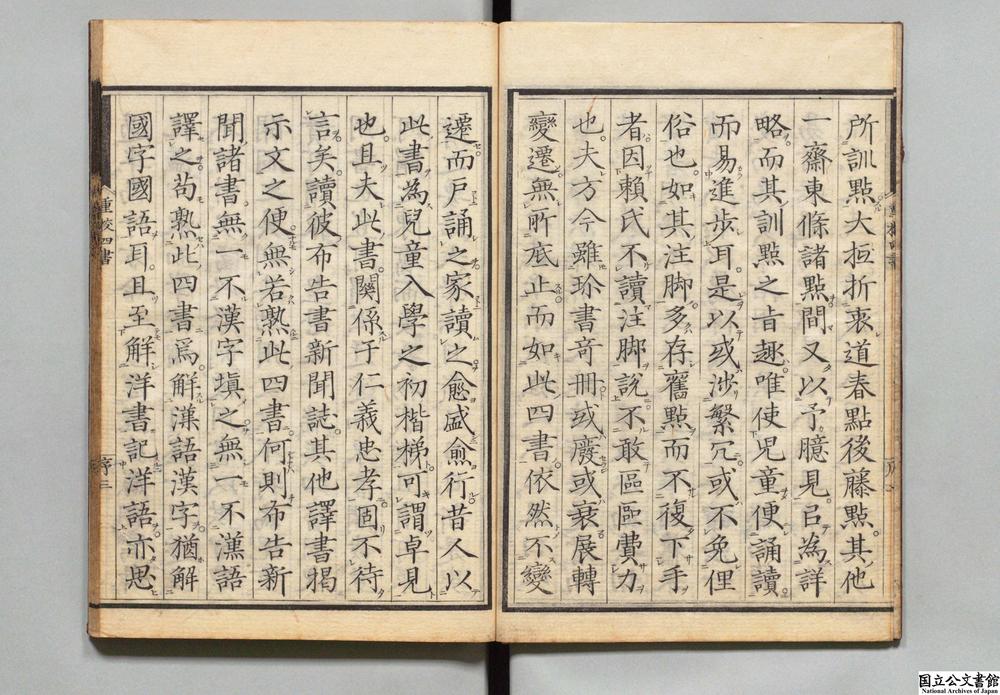 所訓點大抵折衷道春點後藤點其他
一齋東條諸點間又以予臆見㠯為詳
略而其訓點之旨趣唯使児童便誦讀
而易進步耳是以或涉繁冗或不免俚
俗也如其注脚多存舊點而不復下手
者因賴氏不讀注脚說不敢區區費力
也夫方今雖珍書奇冊或廢或衰展轉
變遷無所底止而如此四書依然不變
遷而戶誦之家讀之愈盛愈行昔人以
此書為兒童入學之初楷梯可謂卓見
也且夫此書關係于仁義忠孝固不待
言矣讀彼布告書新聞誌其他譯書揭
示文之便無若熟此四書何則布告新
聞諸書無一不漢字塡之無一不漢語
譯之苟熟此四書焉解漢語漢字猶解
國字國語耳且至解洋書記洋語亦思
重校四書
序二
国立公文書館
National Archives of Japan